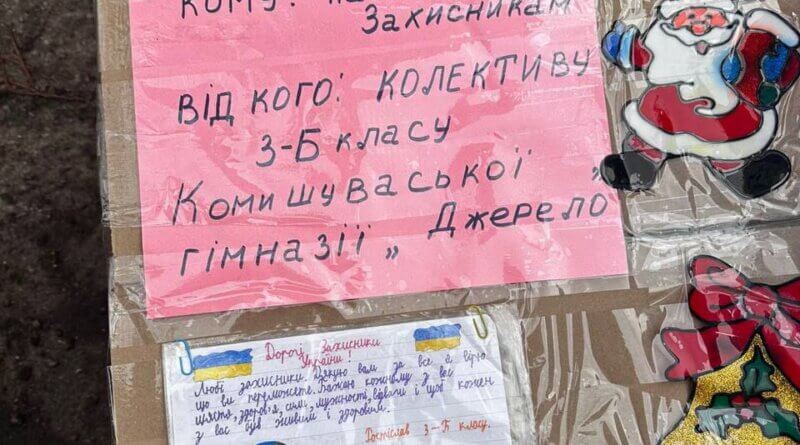 Кому: На
Захисникам
ВІД КОГО: КОЛЕКТИВУ
3-Б класу
Комишуваської „
гімназії „ Джерело
Дорогі Захисники
України!
Любі захисники. Дякую вам за все я вірю
що ви переможете. Бажаю кожному з вас
щастя, здоров'я, сили, мужності, відваги і щоб кожен
з вас був живим і здоровим.
Ростіслав 3-Б класу.